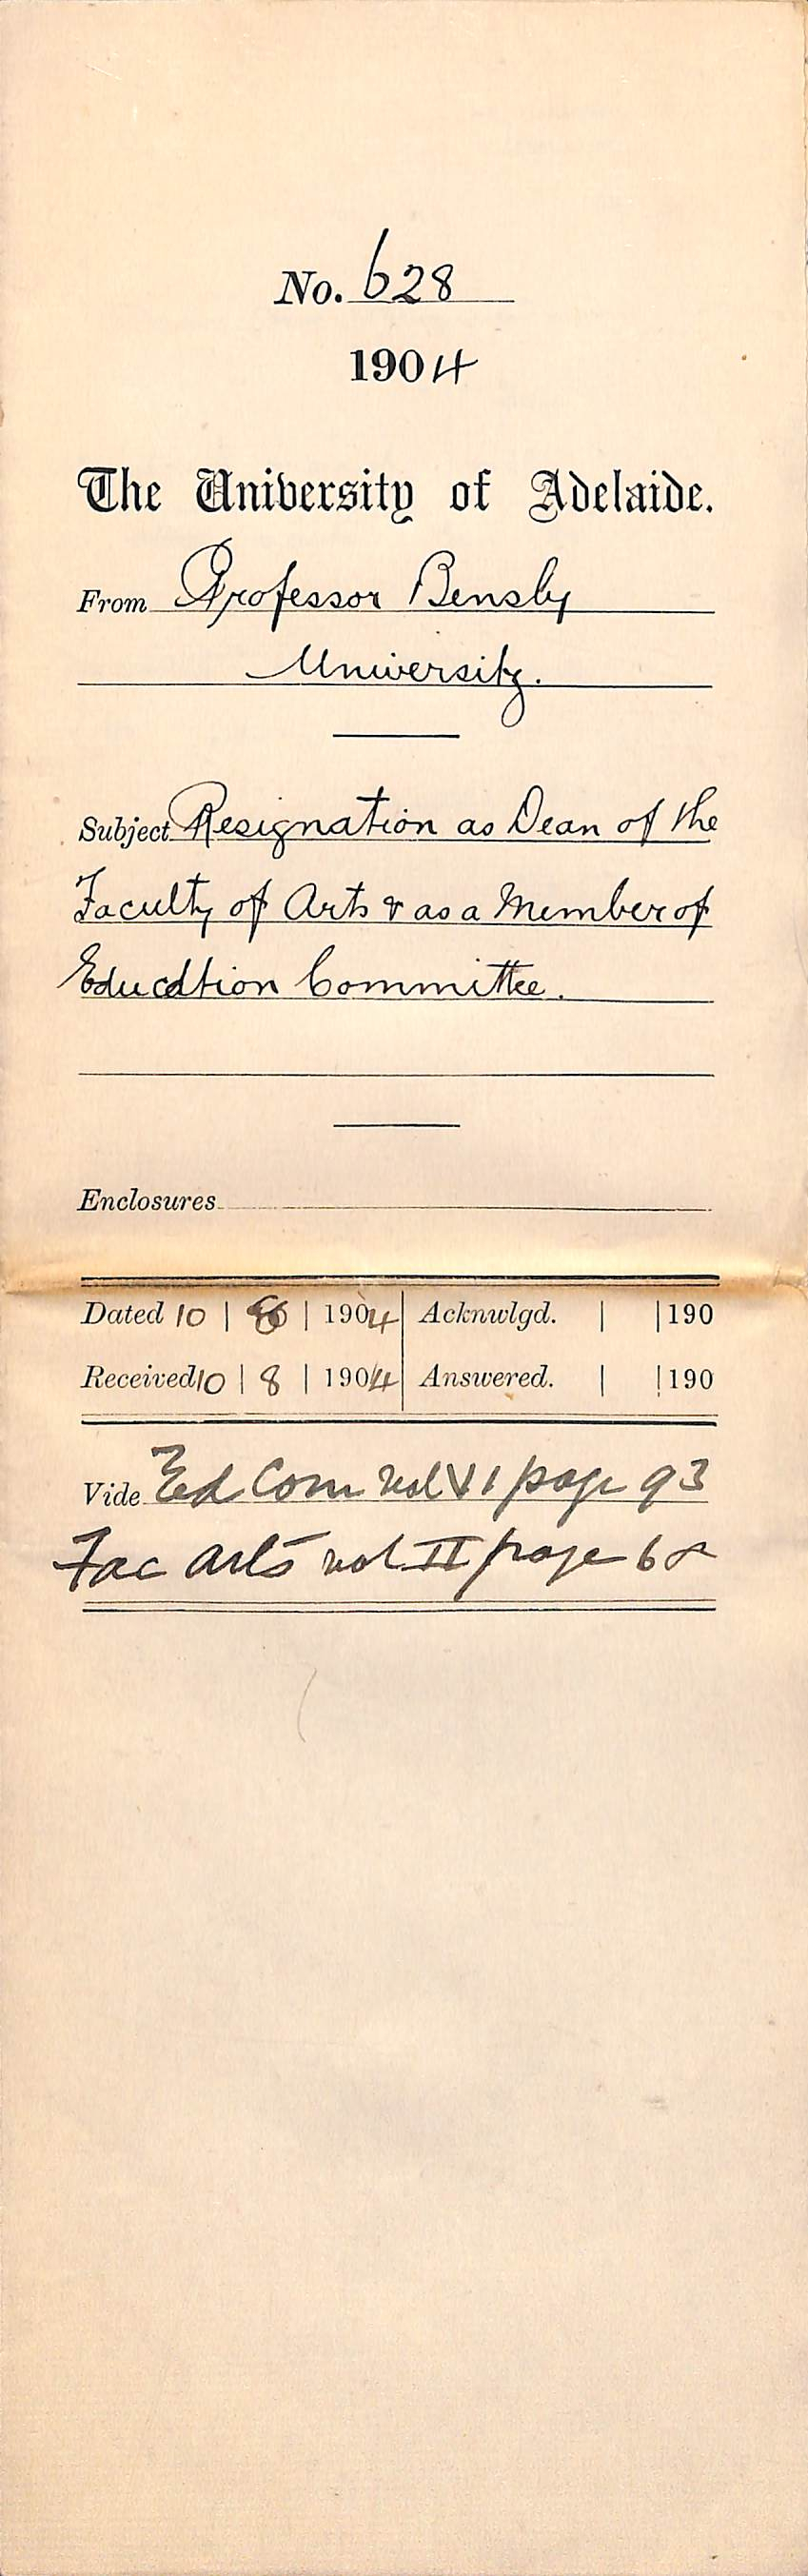 No. 628
1904
The University of Adelaide.
From Professor Bensly
University.
Subject Resignation as Dean of the
Faculty of Arts & as a Member of
Education Committee.
Enclosures
Dated 10 | 8 | 1904 Acknwlgd. | |190
Received 10 | 8 | 1904 Answered. | |190
Vide Ed Com vol VI page 93
Fac Arts vol II page